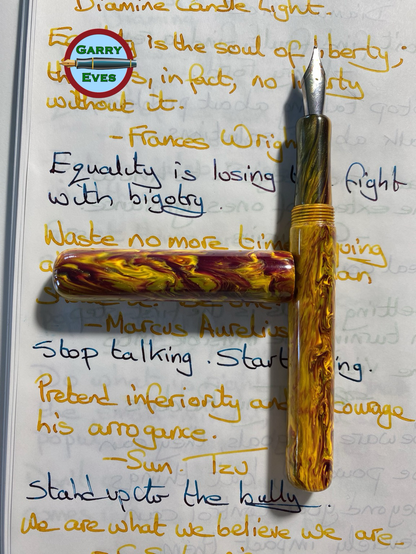 Diamine Candle Light.
GARRY
EVES
is the soul of liberty;
in fact, no
without it.
- Frances Wrigh
Equality is losing fight
with bigotry.
Waste no more time
- Marcus Aurelius
Stop talking. Start ing.
Pretend inferiority and courage
his arrogance.
- Sun Tzu
Stand up to the bully
We are what we believe we are.